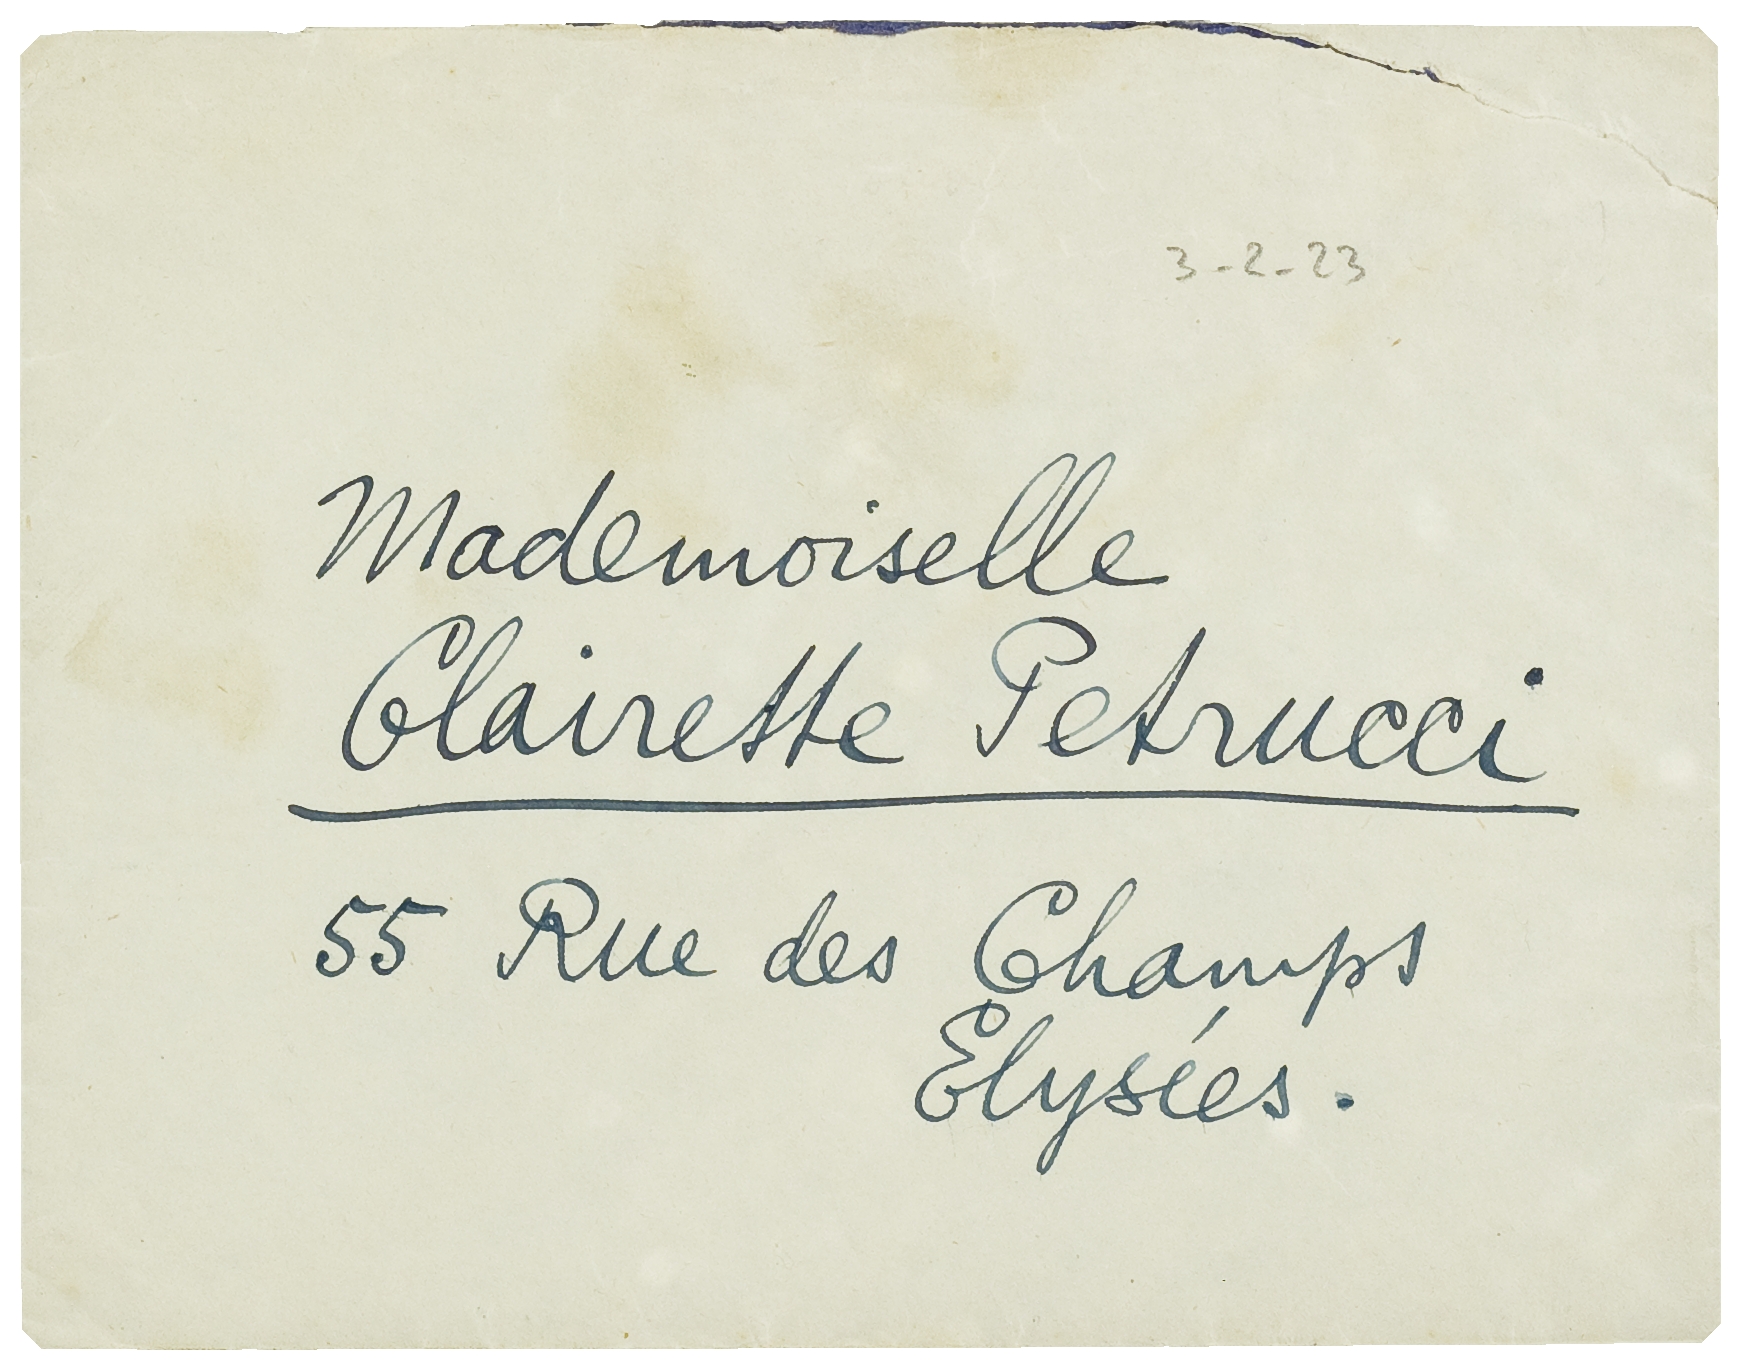 3-2-23
Mademoiselle
Clairette Petrucci
55 Rue des Champs
Elysées.